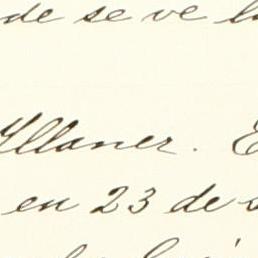 de se ve la
Yllaner. E
en 23 de s